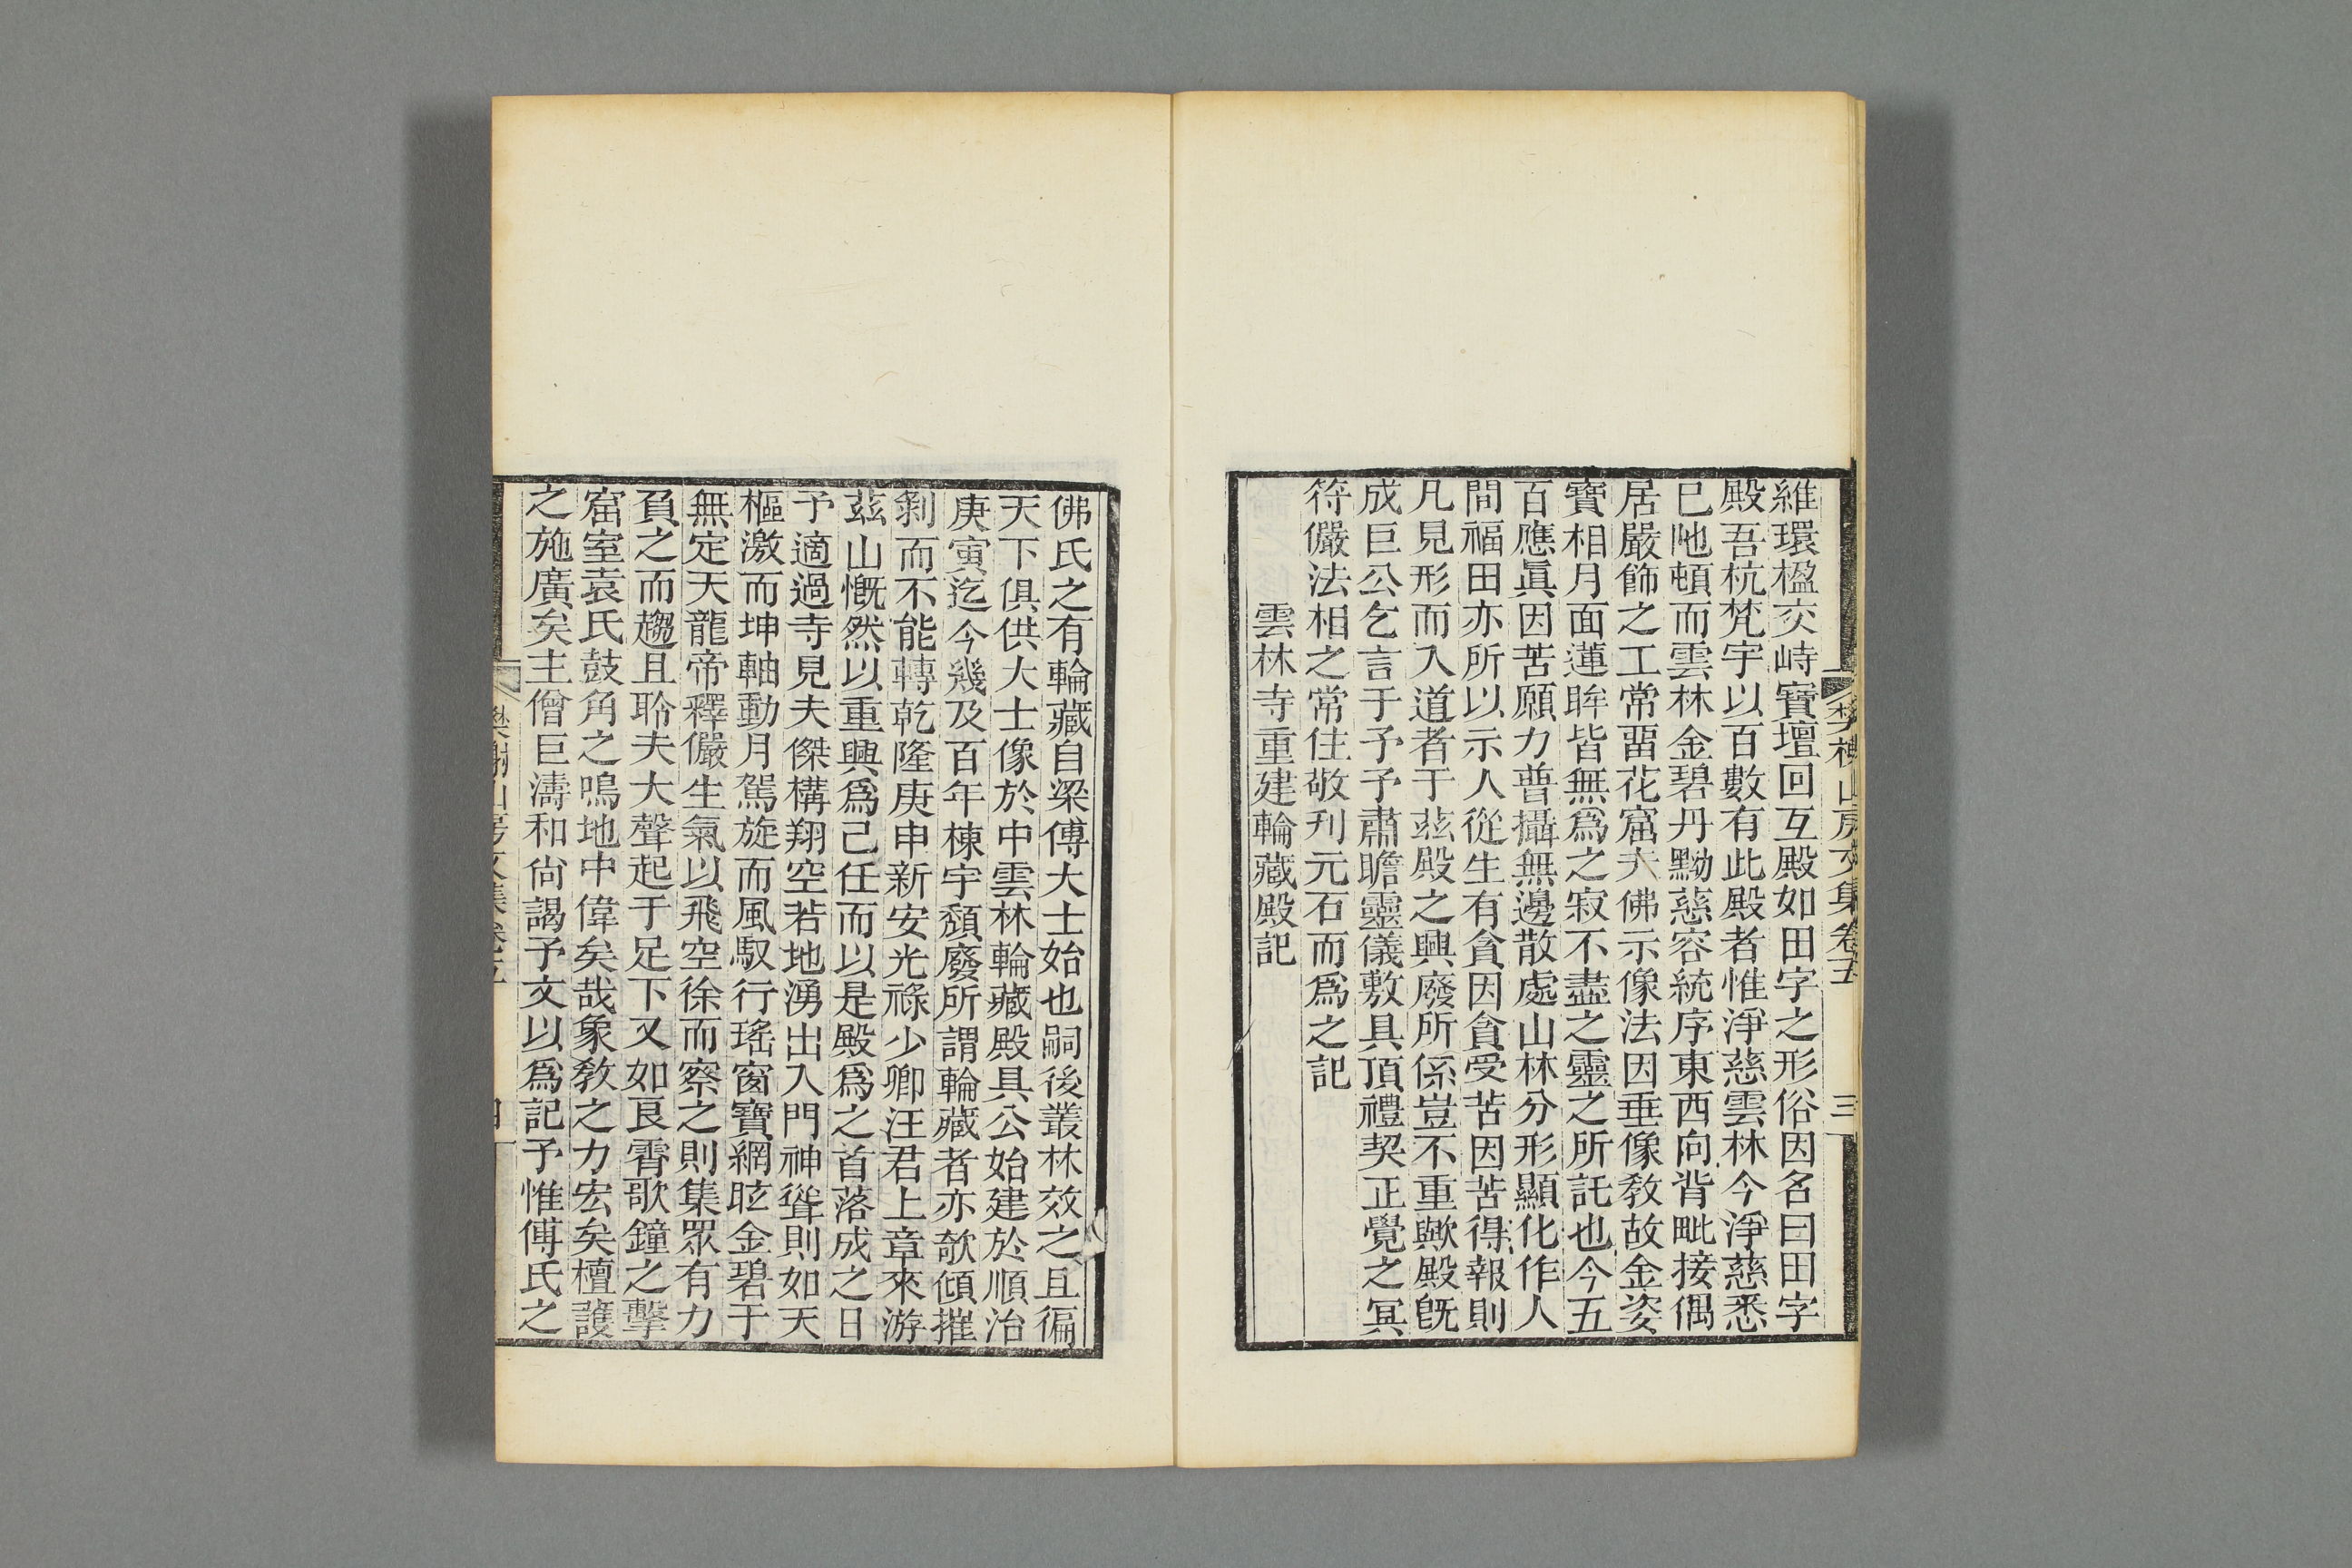 樊榭山房文集卷五
三
維環楹交峙寶壇回互殿如田字之形俗因名曰田字
殿吾杭梵宇以百數有此殿者惟淨慈雲林今淨慈悉
巳阤頓而雲林金碧丹黝慈容統序東西向背毗接偶
居嚴飾之工常畱花窟夫佛示像法因垂像教故金姿
寶相月面蓮眸皆無爲之寂不盡之靈之所託也今五
百應眞因苦願力普攝無邊散處山林分形顯化作人
間福田亦所以示人從生有貪因貪受苦因苦得報則
凡見形而入道者于茲殿之興廢所係豈不重歟殿既
成巨公乞言于予予肅瞻靈儀敷具頂禮契正覺之冥
符儼法相之常住敬刋元石而爲之記
雲林寺重建輪藏殿記
佛氏之有輪藏自梁傅大士始也嗣後叢林效之且徧
天下俱供大士像於中雲林輪藏殿具公始建於順治
庚寅迄今幾及百年棟宇頹廢所謂輪藏者亦欹傾摧
剝而不能轉乾隆庚申新安光祿少卿汪君上章來游
茲山慨然以重興爲己任而以是殿爲之首落成之日
予適過寺見夫傑構翔空若地湧出入門神聳則如天
樞激而坤軸動月駕旋而風馭行瑤窗寶網眩金碧于
無定天龍帝釋儼生氣以飛空徐而察之則集眾有力
負之而趨且聆夫大聲起于足下又如良霄歌鐘之擊
窟室袁氏鼓角之鳴地中偉矣哉象教之力宏矣檀護
之施廣矣主僧巨濤和尙謁予文以爲記予惟傅氏之
樊榭山房文集卷五
四